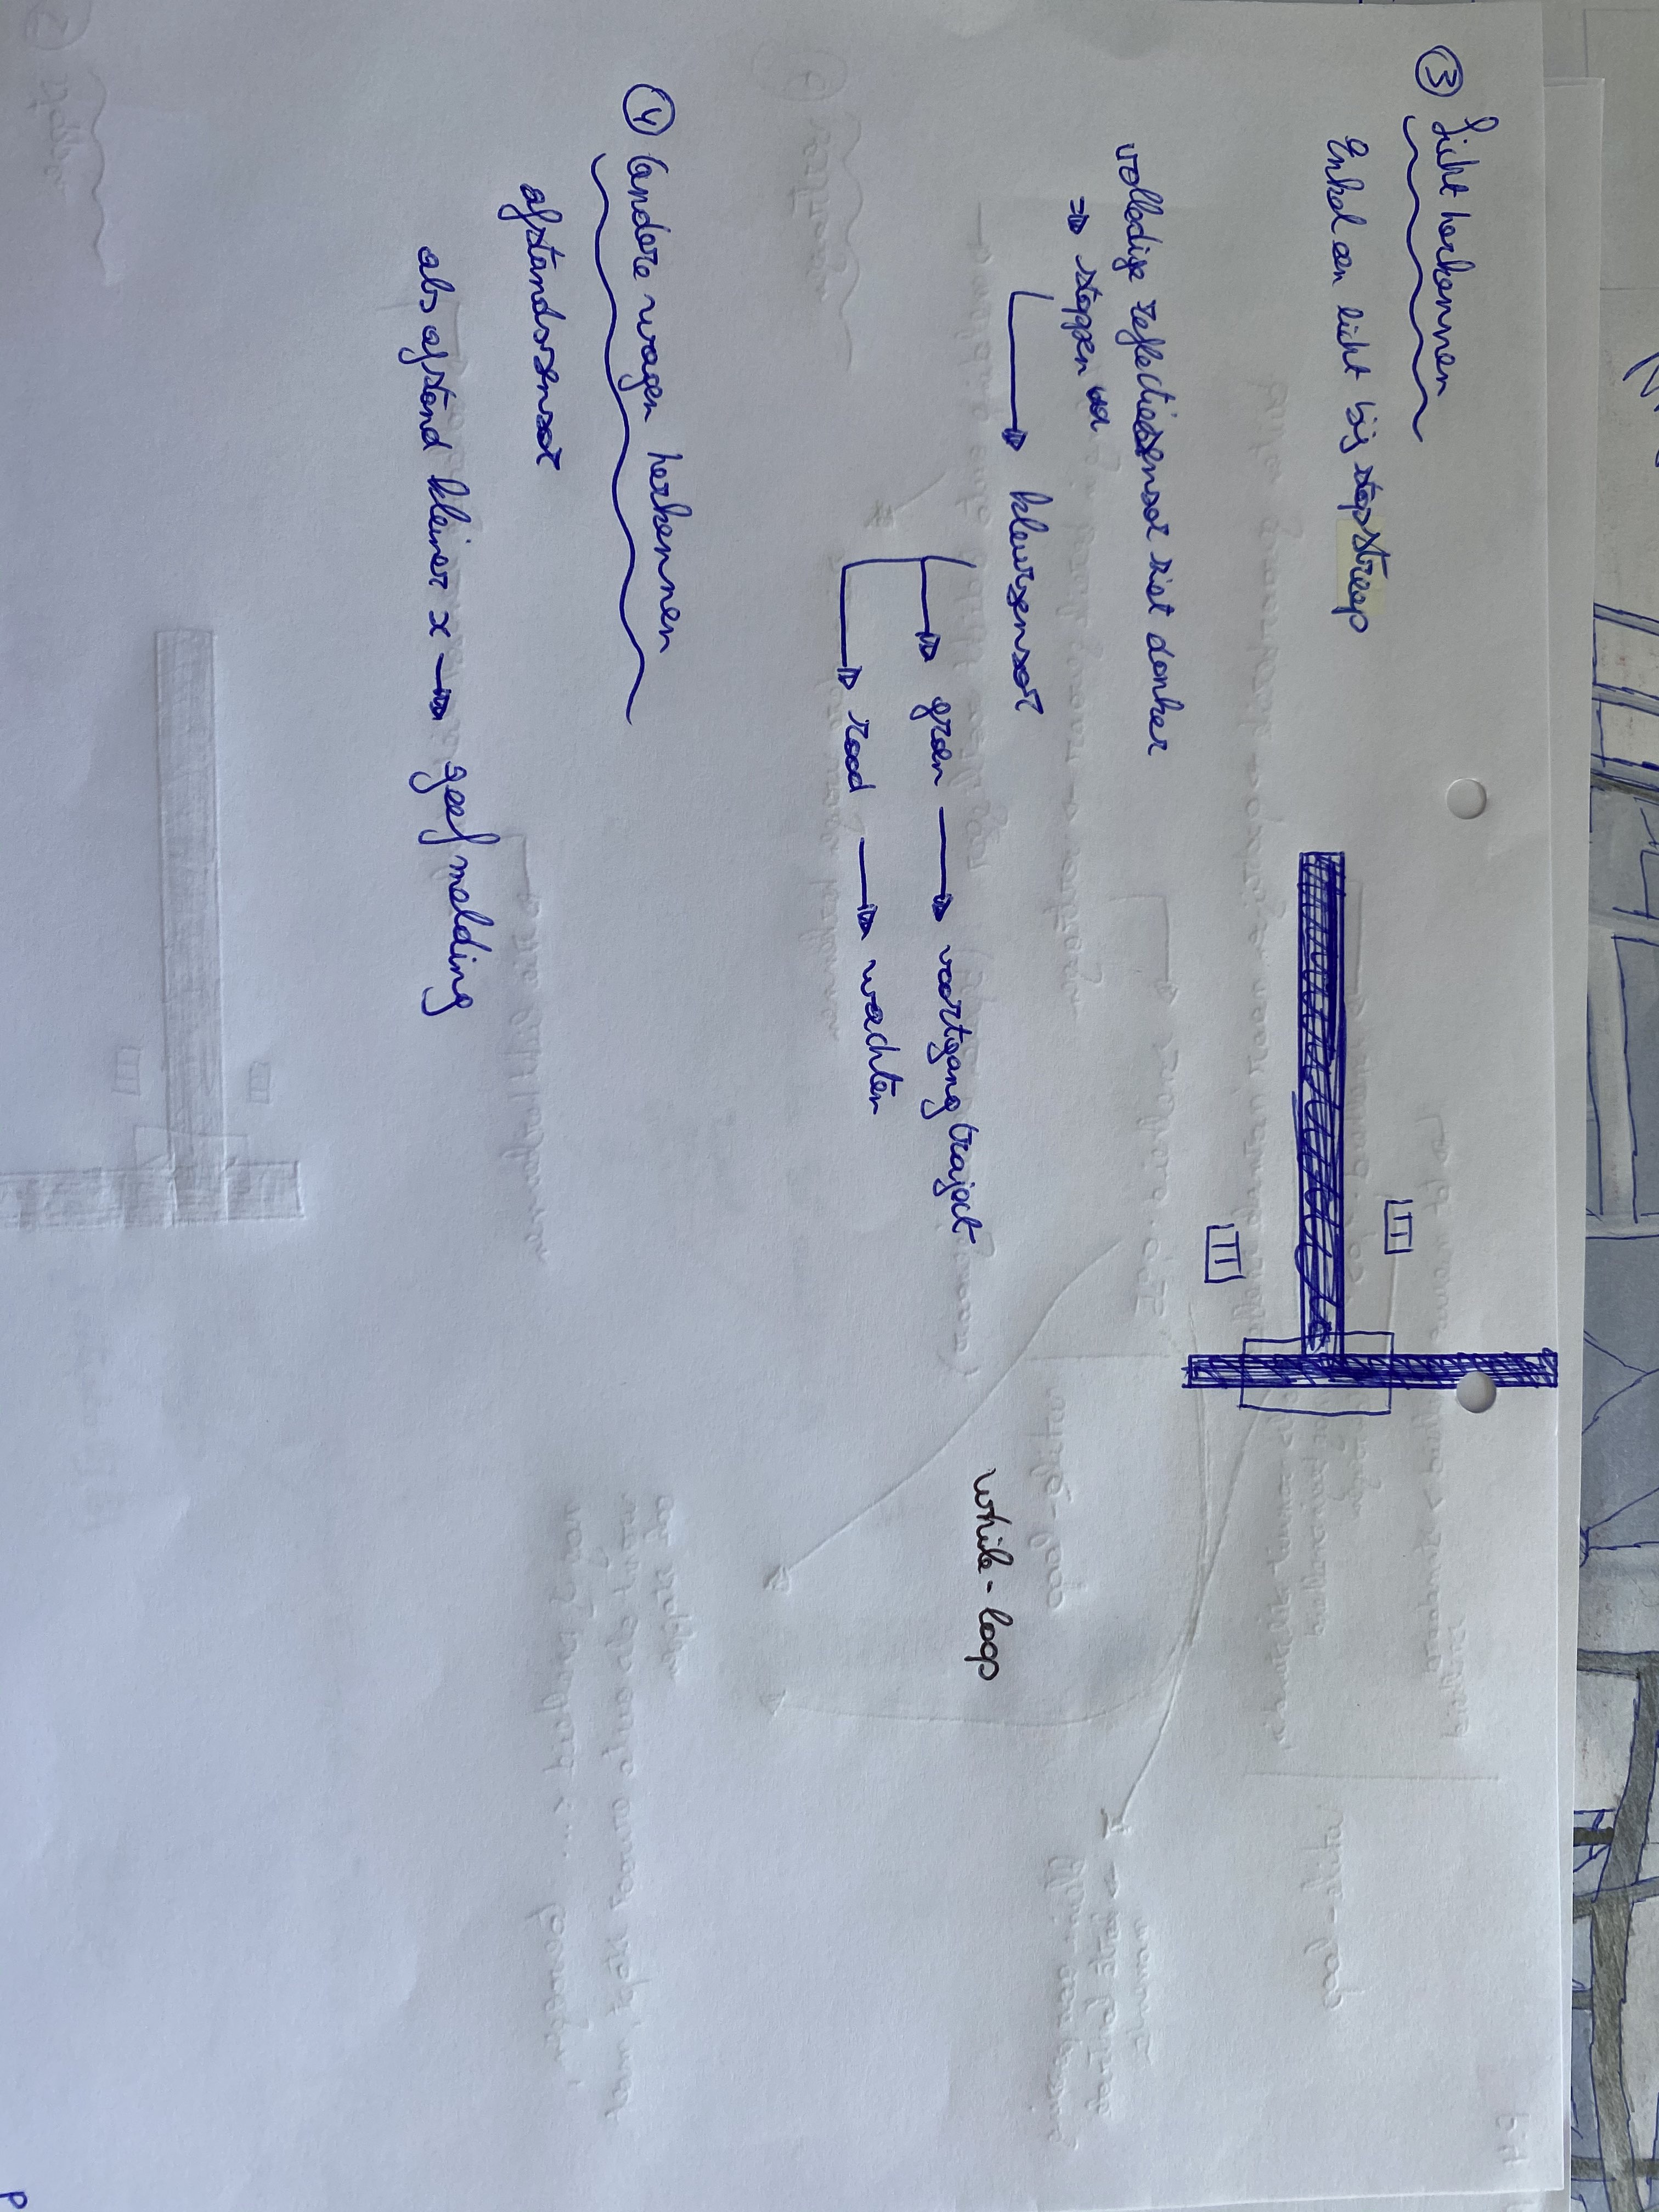 ③ Licht herkennen
Enkel een licht bij stopstreep
volledige reflectiesensor ziet donker
⇒ stoppen
kleursensor
groen → voortgang traject
rood → wachten
while-loop
④ Andere wagen herkennen
afstandssensor
als afstand kleiner x → geef melding